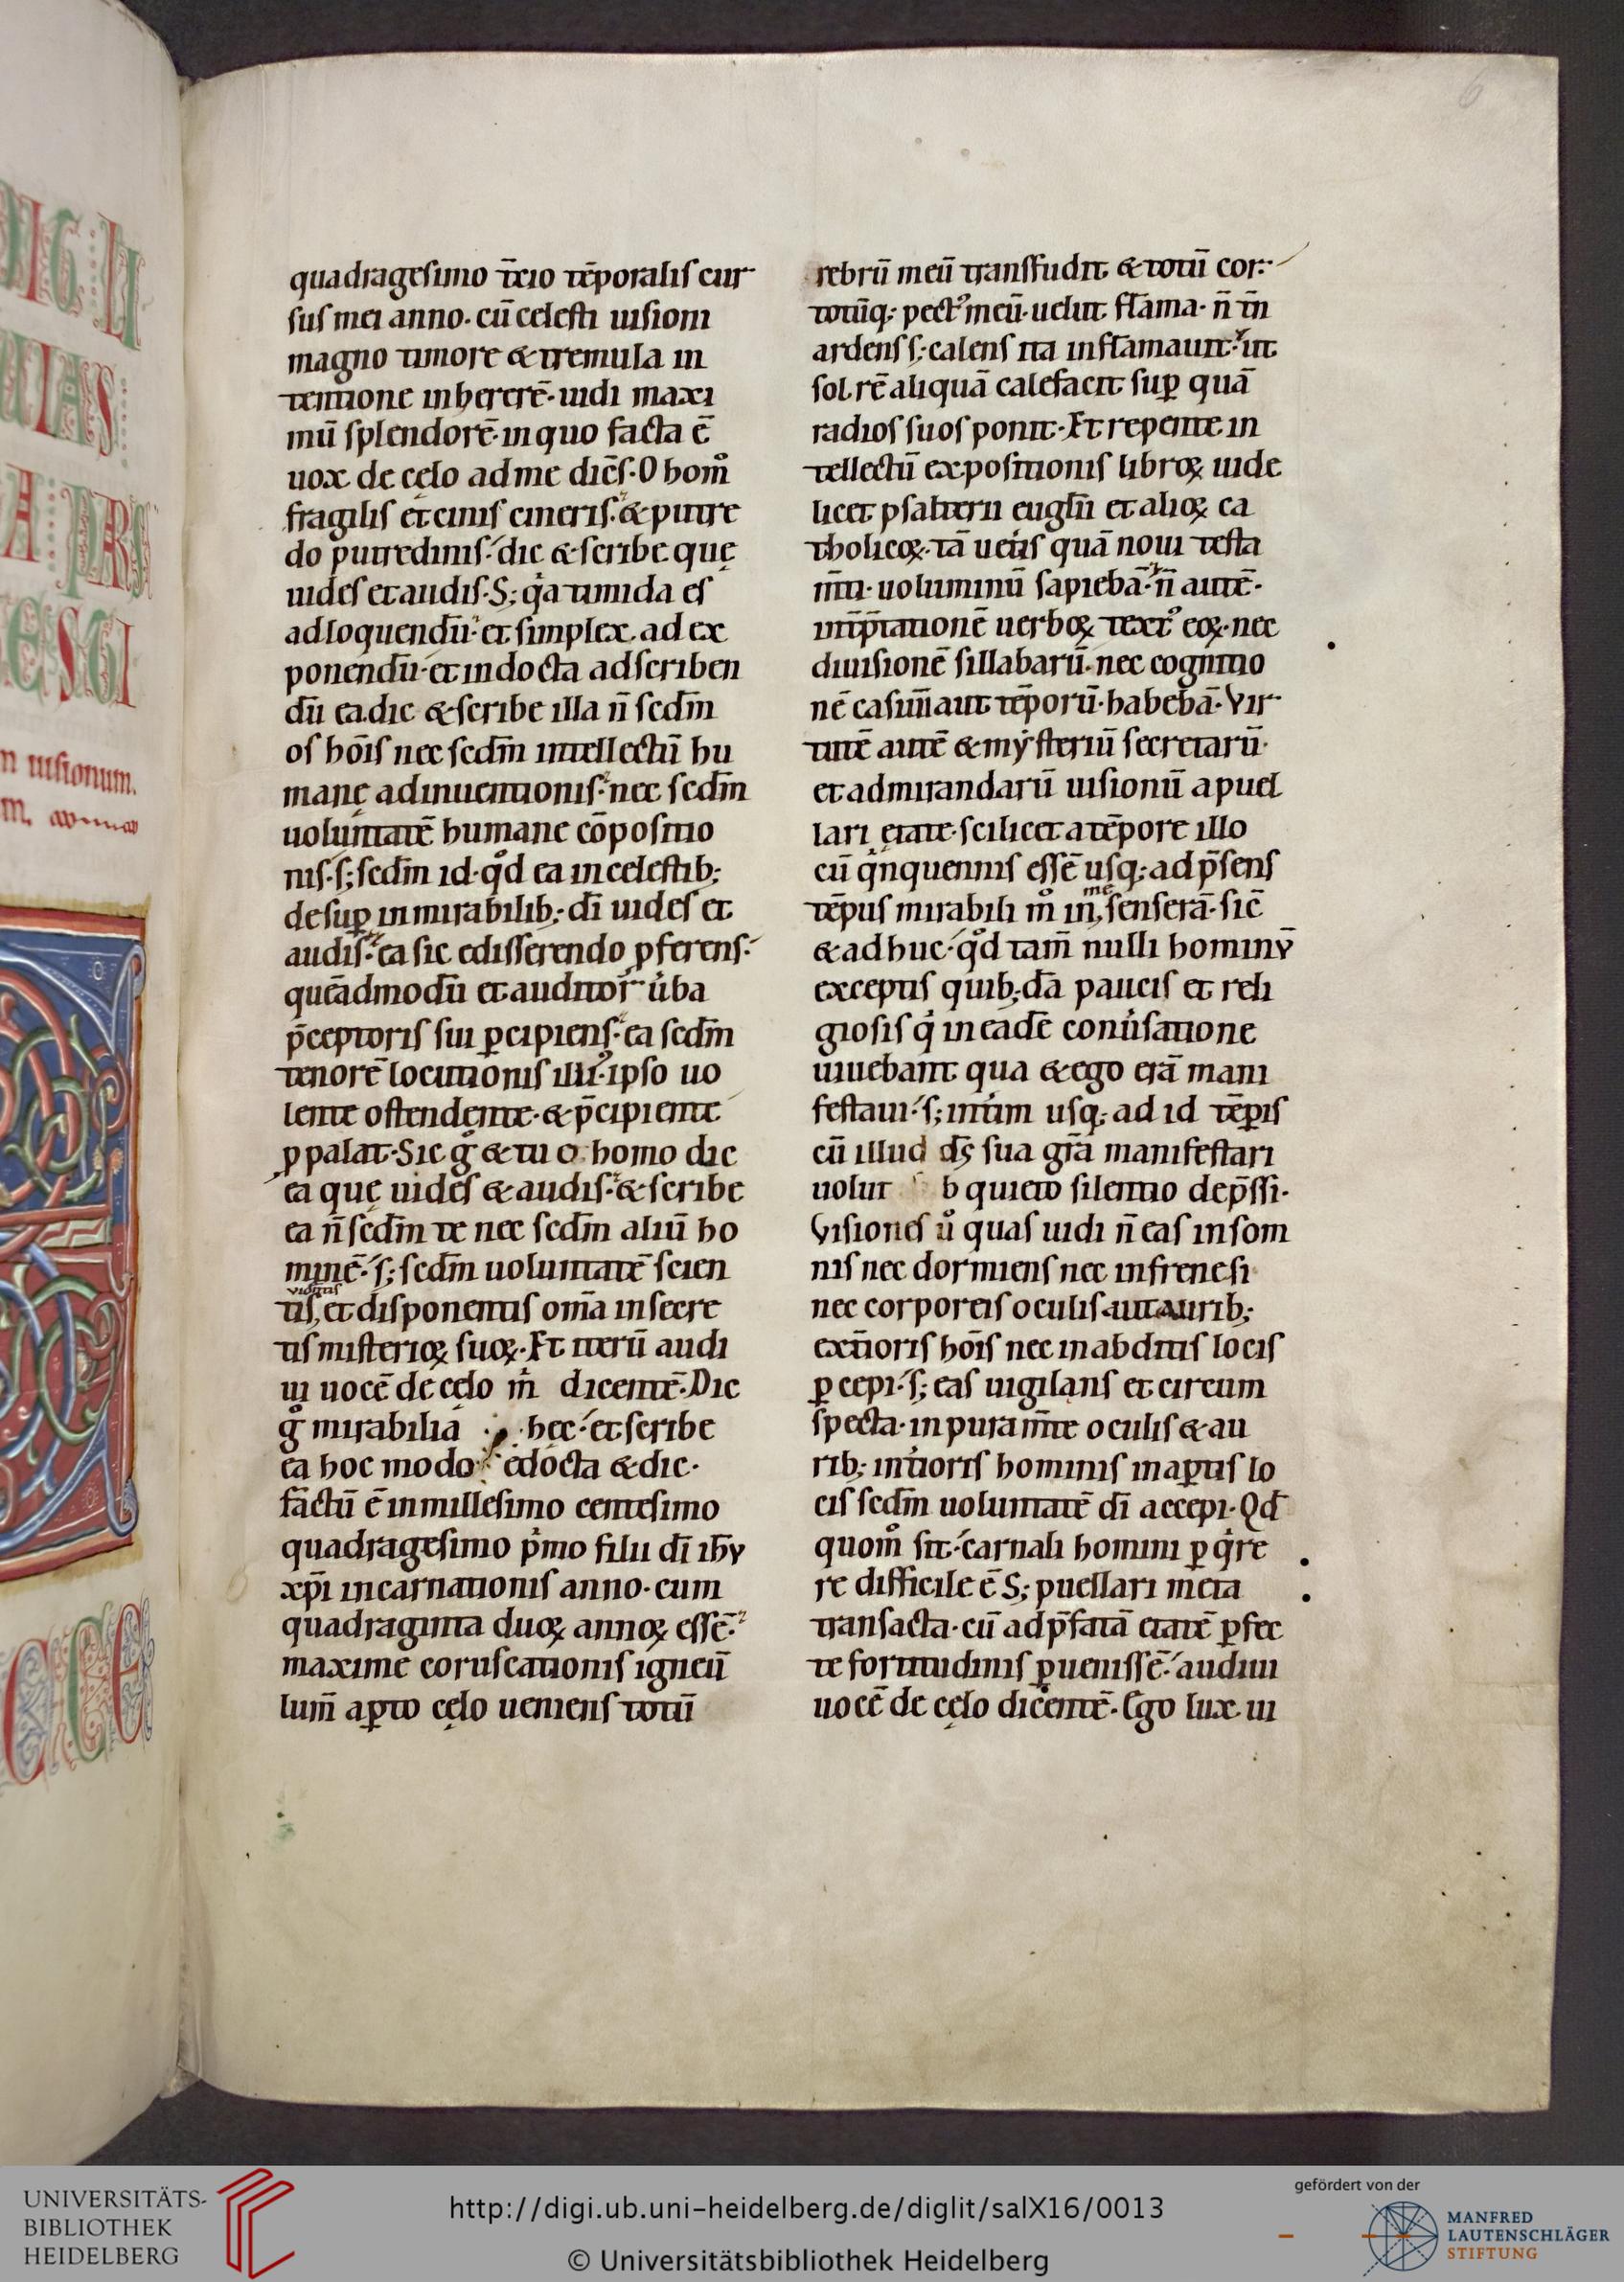 quadragesimo t̄cio tēporalis cur
sus mei anno. cū celesti uisioni
magno timore & tremula in
tentione inhererē. uidi maxi
mū splendorē. in quo facta ē
uox de cęlo ad me dicēs. O homͦ
fragilis et cinis cineris. & putre
do putredinis. dic & scribe quę
uides et audis. S; qͥa timida es
ad loquendū. et simplex. ad ex
ponendū. et indocta ad scriben
dū ea. dic & scribe illa n̄ scdm̄
os hoīs nec scdm̄ intellectū hu
manę adinuentionis. nec scdm̄
uoluntatē humane cōpositio
nis. s; scdm̄ id. qͦd ea in celestib;
desuꝑ in mirabilib; dī uides et
audis. ea sic edisserendo ꝓferens.
quēadmodū et auditor u͛ba
p̄ceptoris sui ꝑcipiens. ea scdm̄
tenorē locutionis illiꝰ. ipso uo
lente ostendente. & p̄cipiente
ꝓpalat. Sic gͦ & tu o homo dic
ea quę uides & audis. & scribe
ea n̄ scdm̄ te nec scdm̄ aliū ho
minē. s; scdm̄ uoluntatē scien
uidentis
tis, et disponentis om̄a in secre
tis misterioꝝ suoꝝ. Et iterū audi
ui uocē de cęlo m̄ dicentē. Dic
gͦ mirabilia hec. et scribe
ea hoc modo edocta & dic.
factū ē in millesimo centesimo
quadragesimo pͥmo filii dī ihv̄
xp̄i incarnationis anno. cum
quadraginta duoꝝ annoꝝ essē.
maxime coruscationis igneū
lum̄ aꝑto cęlo ueniens totū
rebrū meū transfudit & totū cor.
totūq; pectꝰ meū. uelut flāma. n̄ tn̄
ardens s; calens ita inflāmauit. ut
sol rē aliquā calefacit suꝑ quā
radios suos ponit. Et repente in
tellectū expositionis libroꝝ uide
licet psalterii eugl̄ii et alioꝝ ca
tholicoꝝ. tā uet͛is quā noui testa
m̄ti. uoluminū sapiebā. n̄ autē.
int̄p̄tationē uerboꝝ textꝰ eoꝝ. nec
diuisionē sillabarū. nec cognitio
nē casuū aut tēporū. habebā. Vir
tutē autē & mẏsteriū secretarū.
et admirandarū uisionū a puel
lari ętate. scilicet a tēpore illo
cū qͥnquennis essē usq; ad p̄sens
me
tēpus mirabili mͦ in, senserā. sic̄
& adhuc. qͦd tam̄ nulli hominv̄
exceptis quib; dā paucis et reli
giosis qͥ in eadē conu͛satione
uiuebant qua & ego erā mani
festaui. s; int͛im usq; ad id tēꝑis
cū illud ds̄ sua gr̄a manifestari
uoluit b quieto silentio dep̄ssi.
Visiones uͦ quas uidi n̄ eas in som
nis nec dormiens nec in frenesi
nec corporeis oculis aut aurib;
ext̄ioris hoīs nec in abditis locis
ꝑcepi. s; eas uigilans et circum
specta. in pura m̄te oculis & au
rib; int͛ioris hominis in aꝑtis lo
cis scdm̄ uoluntatē dī accepi. Qd̄
quomͦ sit. carnali homini ꝑqͥre
re difficile ē S; puellari meta
transacta. cū ad p̄fatā etatē ꝑfec
te fortitudinis ꝑuenissē. audiui
uocē de cęlo dicentē. Ego lux ui
6
DIG LI
UIAS
n uisionum.
UNIVERSITÄTS-
BIBLIOTHEK
HEIDELBERG
http://digi.ub.uni-heidelberg.de/diglit/salX16/0013
© Universitätsbibliothek Heidelberg
gefördert von der
MANFRED
LAUTENSCHLÄGER
STIFTUNG